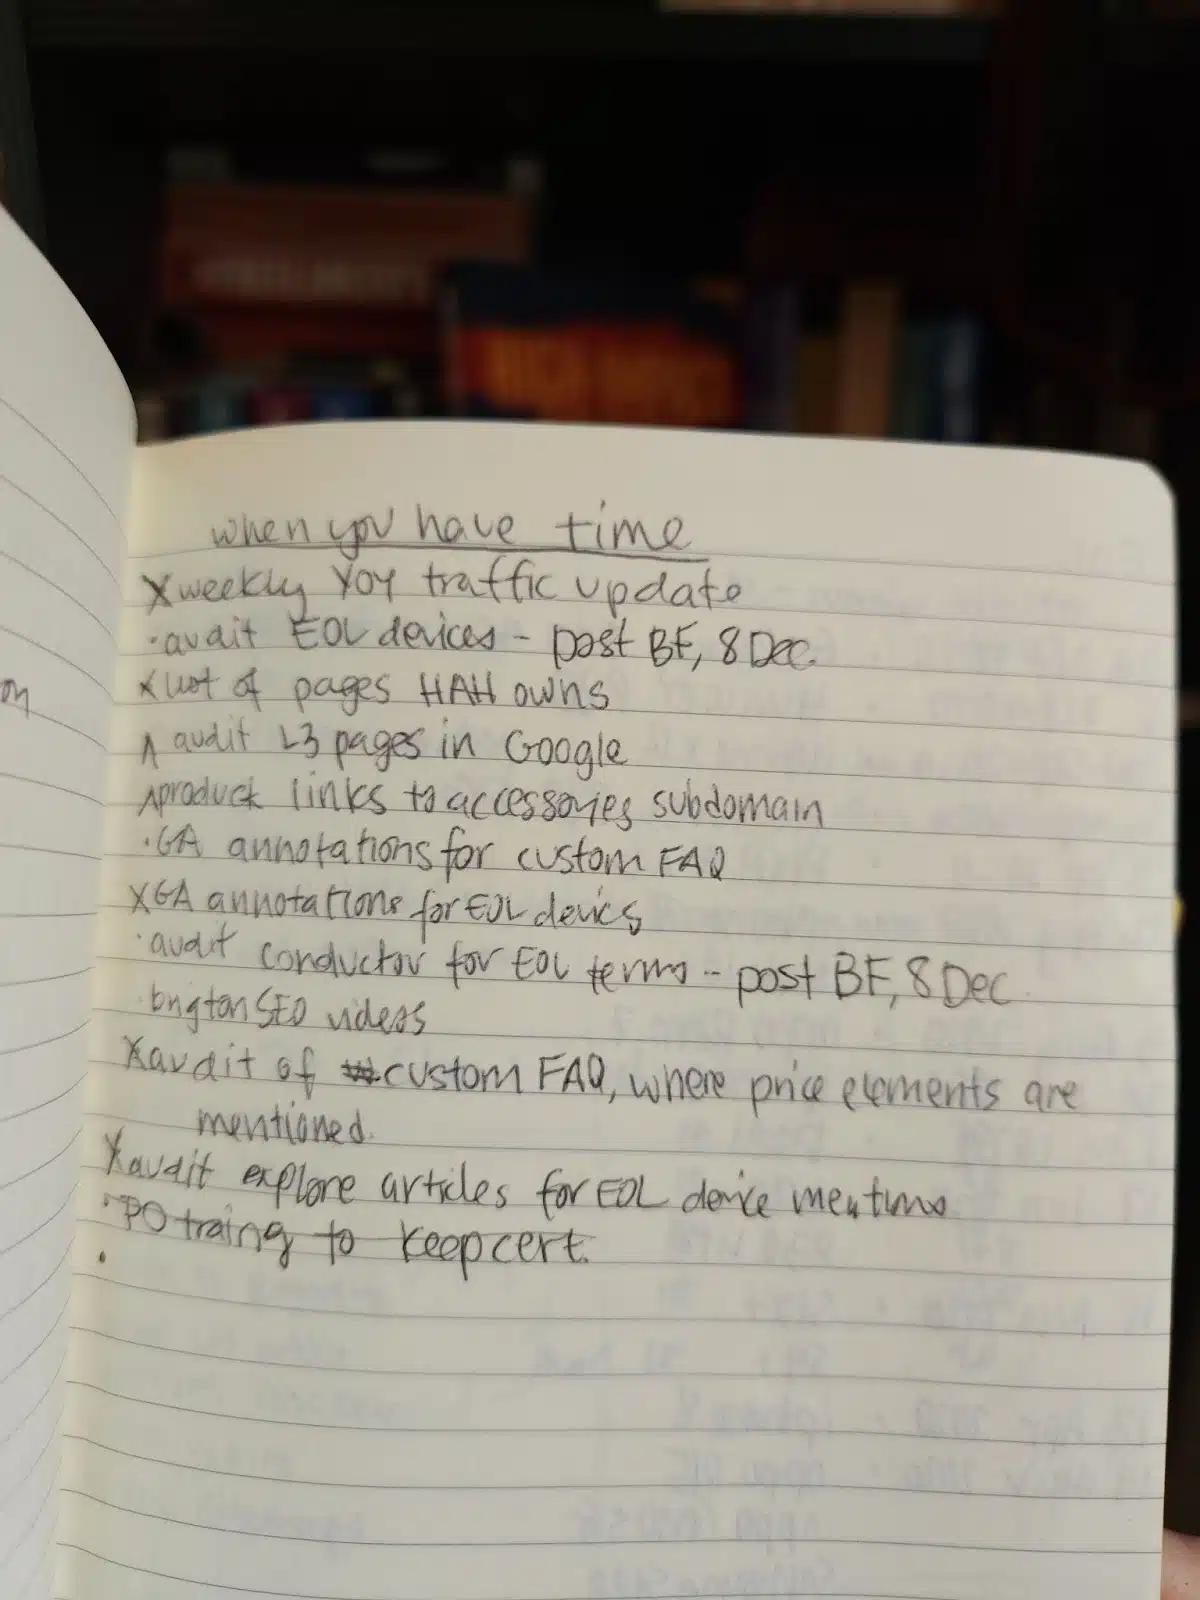 when you have time
x weekly YOY traffic update
· audit EOL devices - post BF, 8 Dec.
x list of pages HAH owns
∧ audit L3 pages in Google
∧ product links to accessories subdomain
· GA annotations for custom FAQ
x GA annotations for EOL devics
· audit conductor for EOL terms - post BF, 8 Dec
· brigton SEO videos
x audit of custom FAQ, where price elements are
mentioned.
x audit explore articles for EOL device mentions
· PO traing to keep cert.
·
on